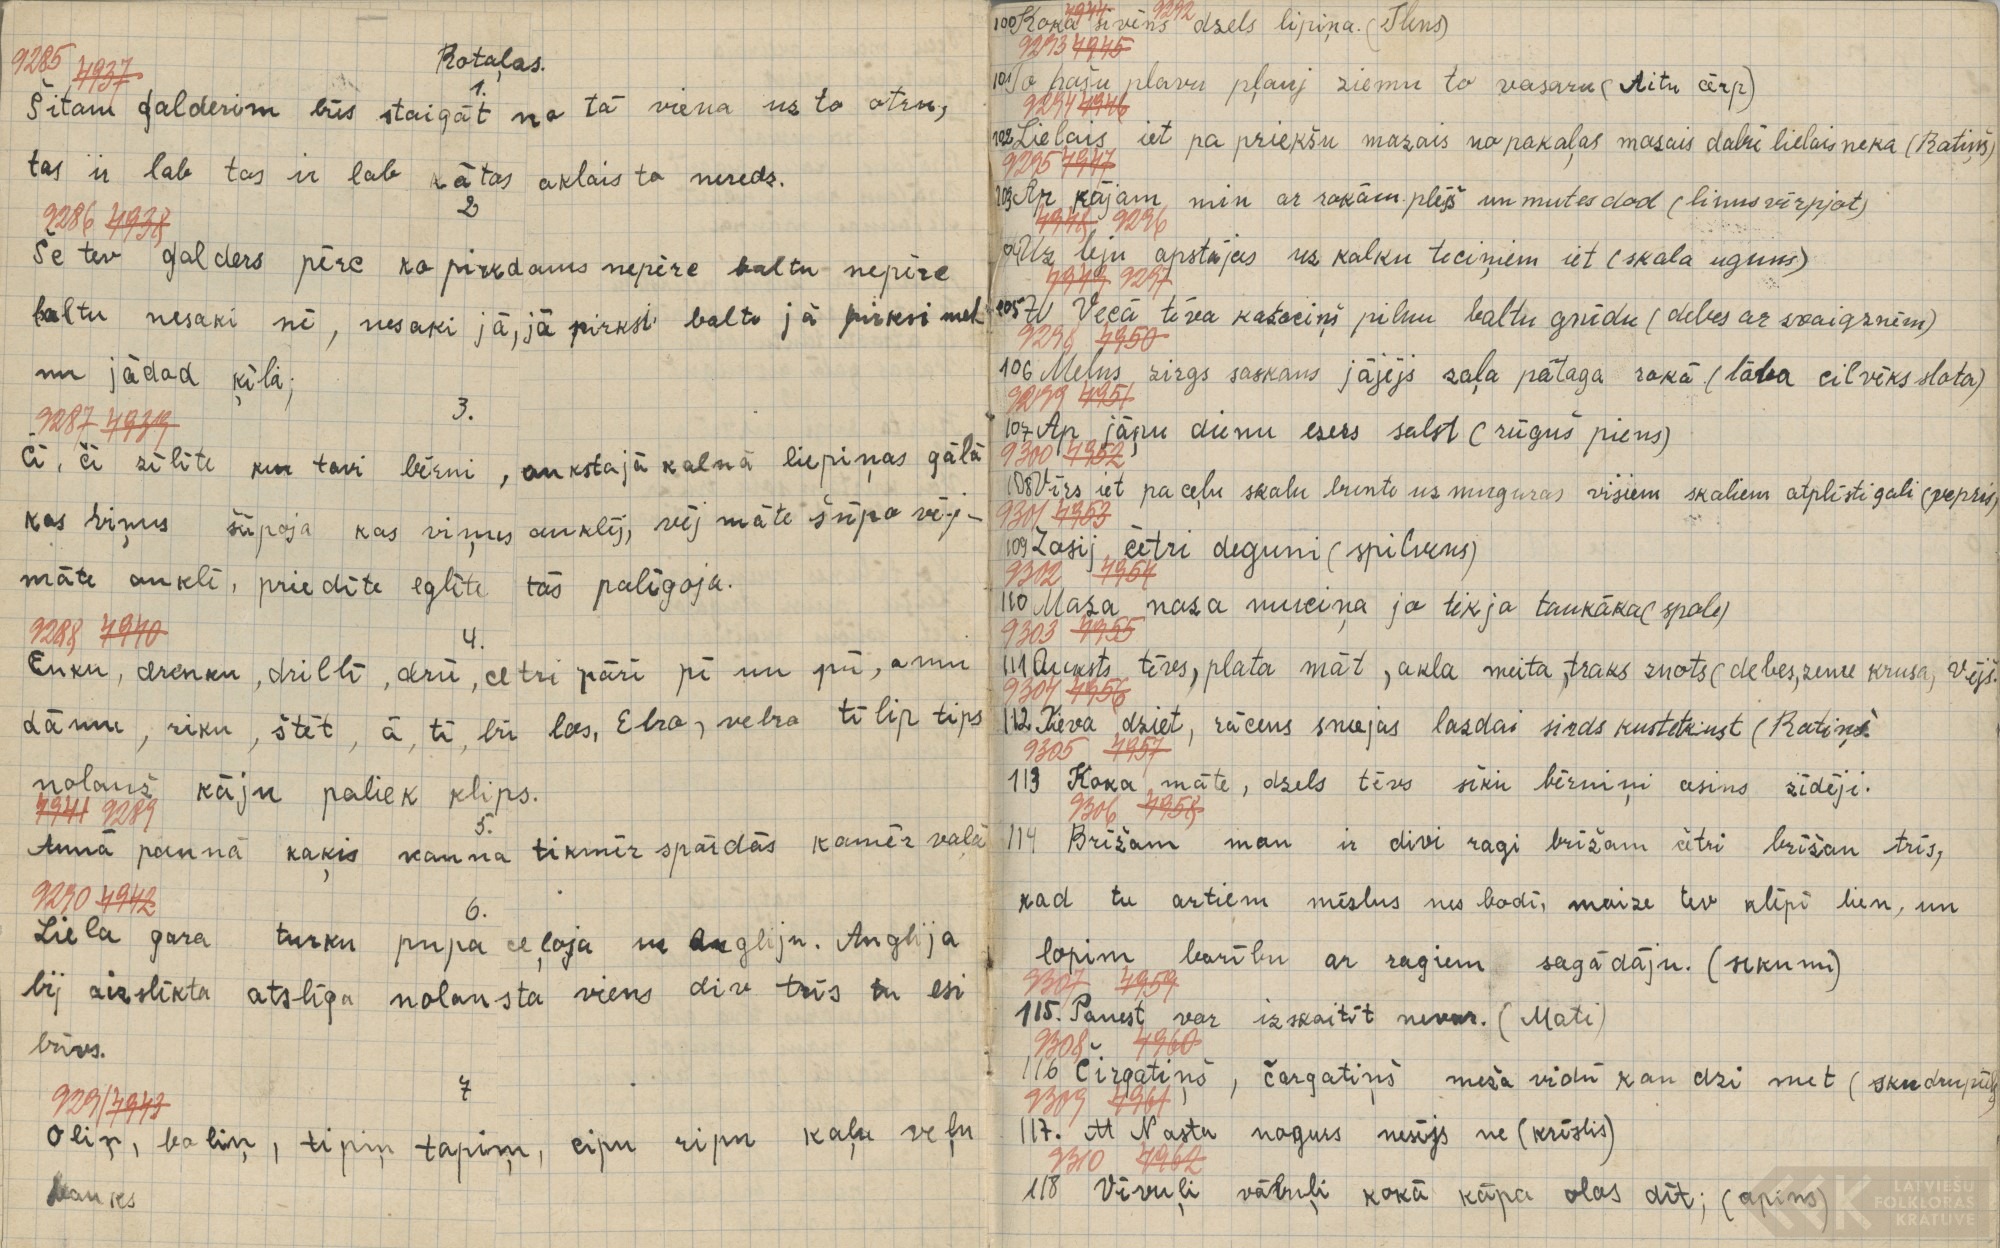 Rotaļas.
9285 4937
1.
Šitam galderim būs staigāt no tā viena uz to otru,
tas ir lab tas ir lab kā tas aklais to neredz.
9286 4938
2
Še tev galders pērc ko pirkdams nepērc baltu nepērc
baltu nesaki nē, nesaki jā, jā pirksi balto jā pirksi mel
nu jādod ķīla;
9287 4939
3.
Či, či zīlīte kur tavi bērni, aukstajā kalnā liepiņas gālā
kas viņus šūpoja kas viņus auklēj, vēj māte šūpo vēj-
māte auklē, priedīte eglīte tās palīgoja.
9288 4940
4.
Enku, drenku, drillī, drū, cetri pāri pī un pū, amu
dāmu, riku, štēt, ā, tī, brī las, Ebra, vebra tīlip tips
nolauž kāju paliek klips.
4941 9289
5.
Annā pannā kaķis kanna tikmēr spārdās kamēr vaļā
9290 4942
6.
Liela gara turku pupa ceļoja uz Angliju. Anglija
bij aizslēkta atslēga nolausta viens div trīs tu esi
brīvs.
9291 4943
7
Oliņ, boliņ, tipiņ tapiņ, cipu ripu kaļu veļu
bauks
4944 9292
100 Koka sivēns dzels lipiņa. (Ilens)
9293 4945
101 To pašu plavu pļauj ziemu to vasaru (Aitu cērp)
9294 4946
102 Lielais iet pa priekšu mazais no pakaļas mazais dabū lielais neka (Ratiņš)
9295 4947
103 Ar kājam min ar rokām plēš un mutes dod (linus vērpjot)
4948 9296
104 Uz leju apstājas uz kalku teciņiem iet (skala uguns)
4949 9297
105 Vecā tēva kažociņš pilnu baltu grūdu (debes ar zvaigznēm)
9298 4950
106 Melns zirgs saskans jājējs zaļa pātaga rokā (lāva cilvēks slota)
9299 4951
107 Ap jāņu dienu ezers salst (rūgušs piens)
9300 4952
108 Vīrs iet pa ceļu skalu bunte uz muguras visiem skaliem atplēsti gali (vepris)
9301 4953
109 Zosij četri deguni (spilvens)
9302 4954
110 Maza naza muciņa jo tek jo taukāka (spole)
9303 4955
111 Auksts tēvs, plata māt, akla meita, traks znots (debes, zeme krusa, Vējš.
9304 4956
112 Kleva dziet, rācens smejas lazdai sirds kustet kust (Ratiņš
9305 4957
113 Koka māte, dzels tēvs sīki bērniņi asins zīdēji.
9306 4958
114 Brīžam man ir divi ragi brīžam četri brīžan trīs,
kad tu artiem mēslus nes bodī, maize tev klēpī lien, un
lopim barību ar ragiem sagādāju. (sekumi)
9307 4959
115. Panest var izskaitīt nevar. (Mati)
9308 4960
116 Čirgatiņš, čargatiņš meža vidū kan dzi met (skudrupūlis
9309 4961
117. Nasta nogurs nesējs ne (krēslis)
9310 4962
118 Vīvuļi vābuļi kokā kāpa olas dēt; (apins)
LATVIEŠU
FOLKLORAS
KRĀTUVE